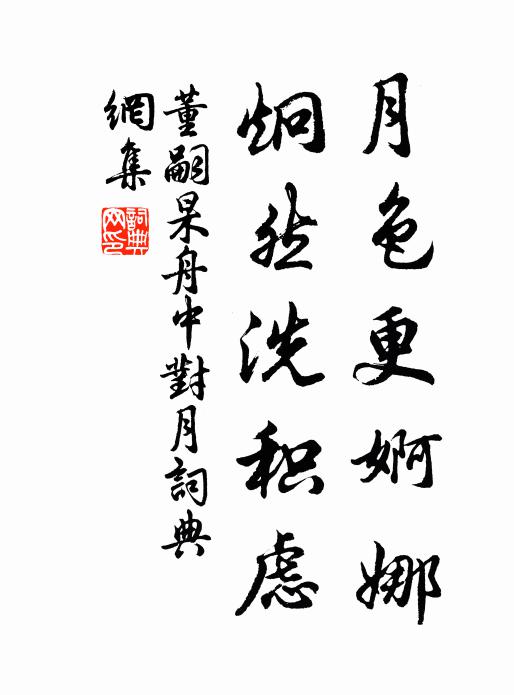 月色更婀娜
炯然洗积虑
董嗣杲舟中對月詞典
網集
詞典网印